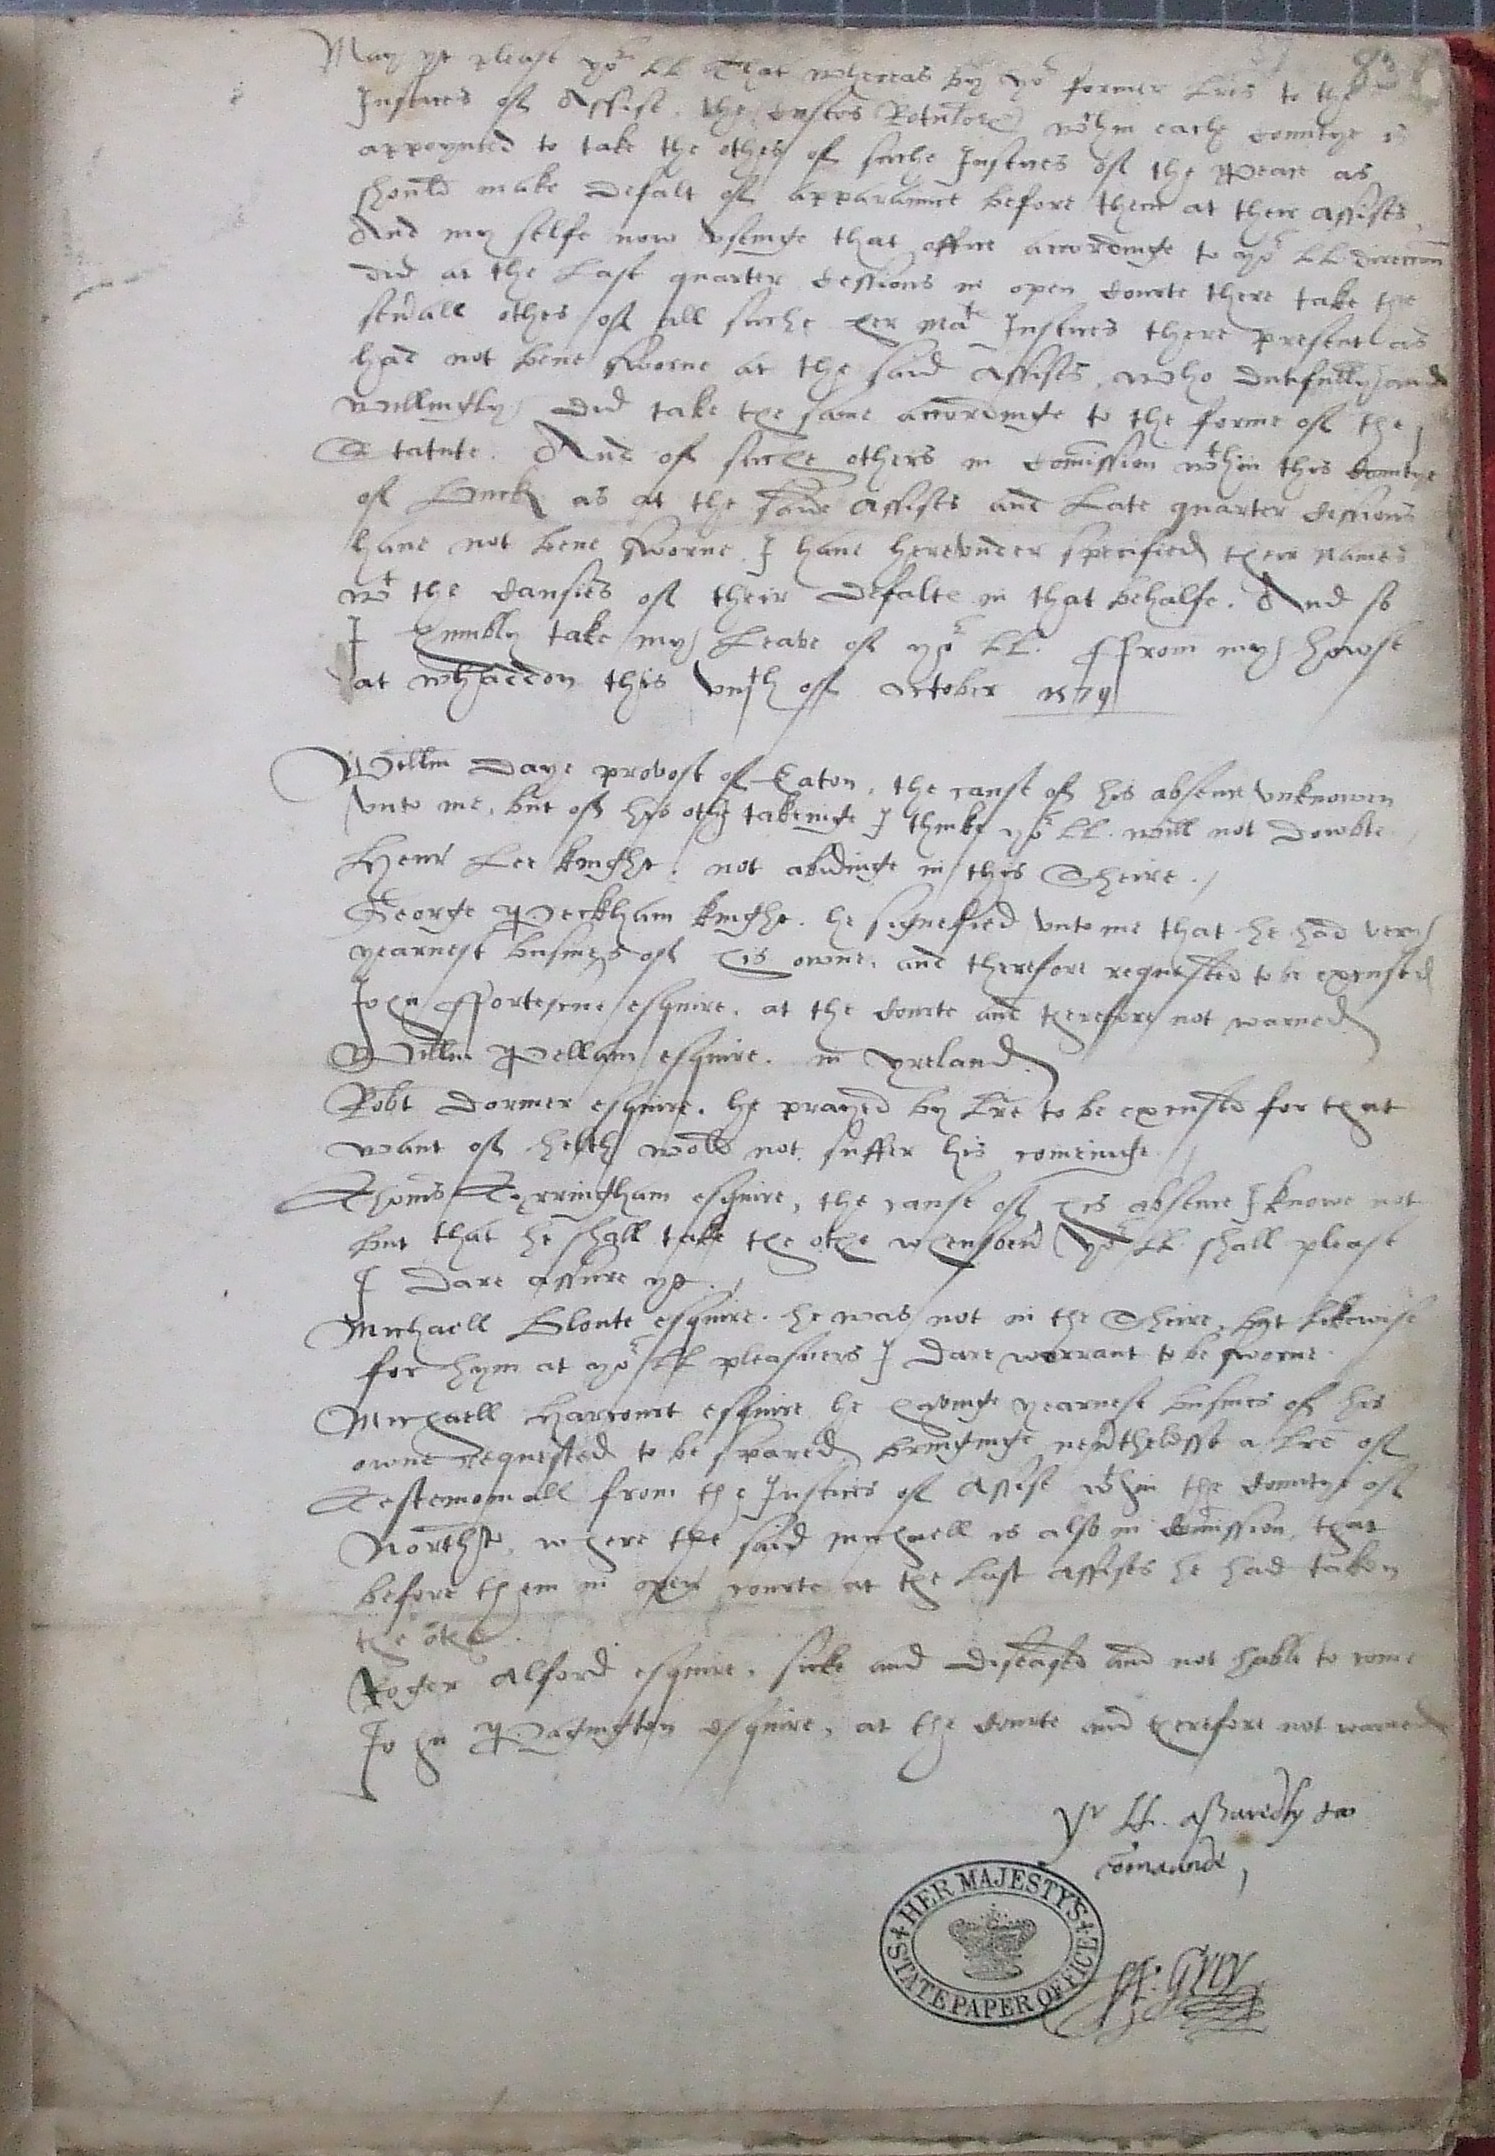 83
May yt please yor LL That whereas by yor former Lres to the
Justices of Assise, the Custos Rotulor wthin eache Countye is
appoynted to take the othes of suche Justices of the Peace as
should make defalt of apparaunce before them at their Assises
And my selfe now useinge that office accordinge to yor LL direccon
did at the Last quarter Cessions in open Courte there take the
severall othes of all suche her Mats Justices there present as
had not bene sworne at the said Assises, who dutifully and
willingly did take the same accordinge to the forme of the
Statute. And of suche others in Comission wthin this Countye
of Buck as at the saide Assises and Late quarter Cessions
have not bene sworne I have hereunder specified their names
wt the Causes of their defalte in that behalfe. And so
I humbly take my Leave of yor LL. ffrom my howse
at Whaddon this viith of October 1579
Willm Daye provost of Eaton, the cause of his absence unknowen
unto me, but of his othe takeinge I thinke yor LL. will not dowbte
Henr Lee knight, not abidinge in this Sheire.
George Peckham knight. he signefied unto me that he had very
yearnest busines of his owne, and therefore requested to be excused
John ffortescue esquire. at the Courte and therefore not warned
Willm Pellam esquire. in Yreland
Robt Dormer esquire. he prayed by Lre to be excused for that
want of helth wold not suffer his cominge.
Thoms Tyrringham esquire, the cause of his absence I knowe not
but that he shall take the othe whensoever yor LL shall please
I dare assure yt.
Michaell Blonte esquire. he was not in the Shire, but likewise
for hym at yor LL pleasuers I dare warrant to be sworne.
Michaell Harcourt esquire he havinge yearnest busines of his
owne requested to be spared bringinge neverthelesse a Lre of
Testemoniall from the Justices of Assise wthin the Countye of
Northt, where the said Michaell is also in Comission, that
before them in open courte at the Last Assises he had taken
the othe.
Roger Alford esquire, sicke and diseased and not hable to come
John Packington esquire, at the Courte and therefore not warned
Yr LL. assuredly too
comaunde,
Grey
HER MAJESTY'S STATE PAPER OFFICE